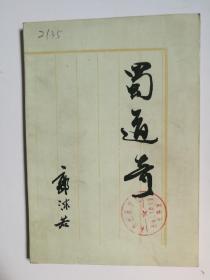 2135
蜀道奇
郭沫若